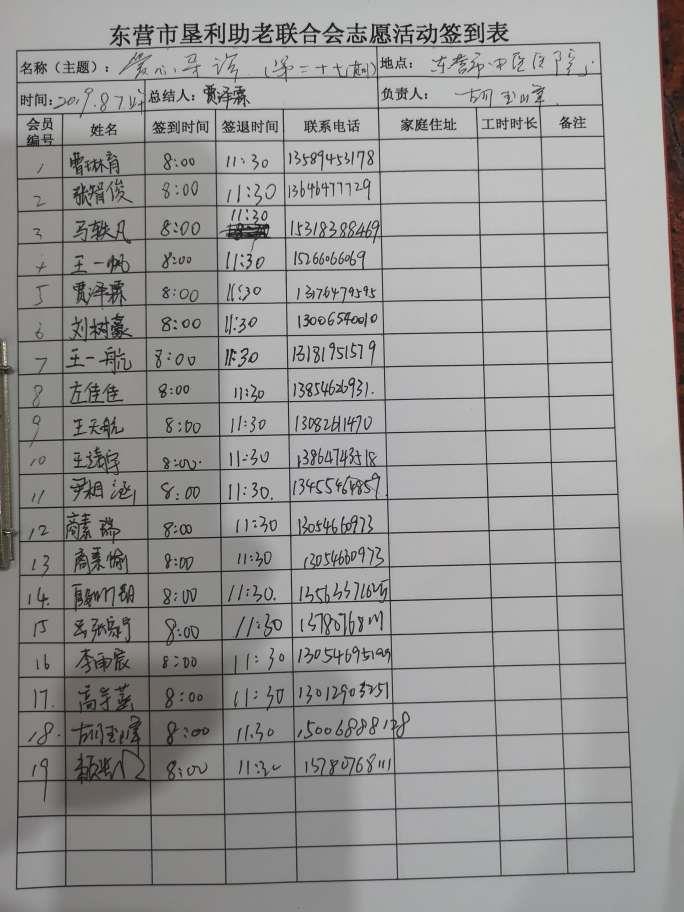 东营市垦利助老联合会志愿活动签到表
名称(主题): 爱心导诊 (第二十七期) 地点: 东营市中医医院
时间: 2019.8.7 总结人: 贾泽霖 负责人: 胡玉峰
会员编号 姓名 签到时间 签退时间 联系电话 家庭住址 工时时长 备注
1 曹琳育 8:00 11:30 13589453178
2 张智俊 8:00 11:30 13646477729
3 马轶凡 8:00 11:30 15318388469
4 王一帆 8:00 11:30 15266066069
5 贾泽霖 8:00 11:30 13176479595
6 刘树豪 8:00 11:30 13006540010
7 王一航 8:00 11:30 13181951579
8 左佳佳 8:00 11:30 13854626931.
9 王天航 8:00 11:30 13082611470
10 王靖宇 8:00 11:30 13864743518
11 尹相涵 8:00 11:30. 13455464859
12 商素瑞 8:00 11:30 13054660973
13 商素愉 8:00 11:30 13054660973
14. 8:00 11:30.
15 8:00 11:30
16 李雨宸 8:00 11:30
17. 高宇燕 8:00 11:30 13012903251
18. 胡玉峰 8:00 11:30 15006888128
19 8:00 11:30 15780768111